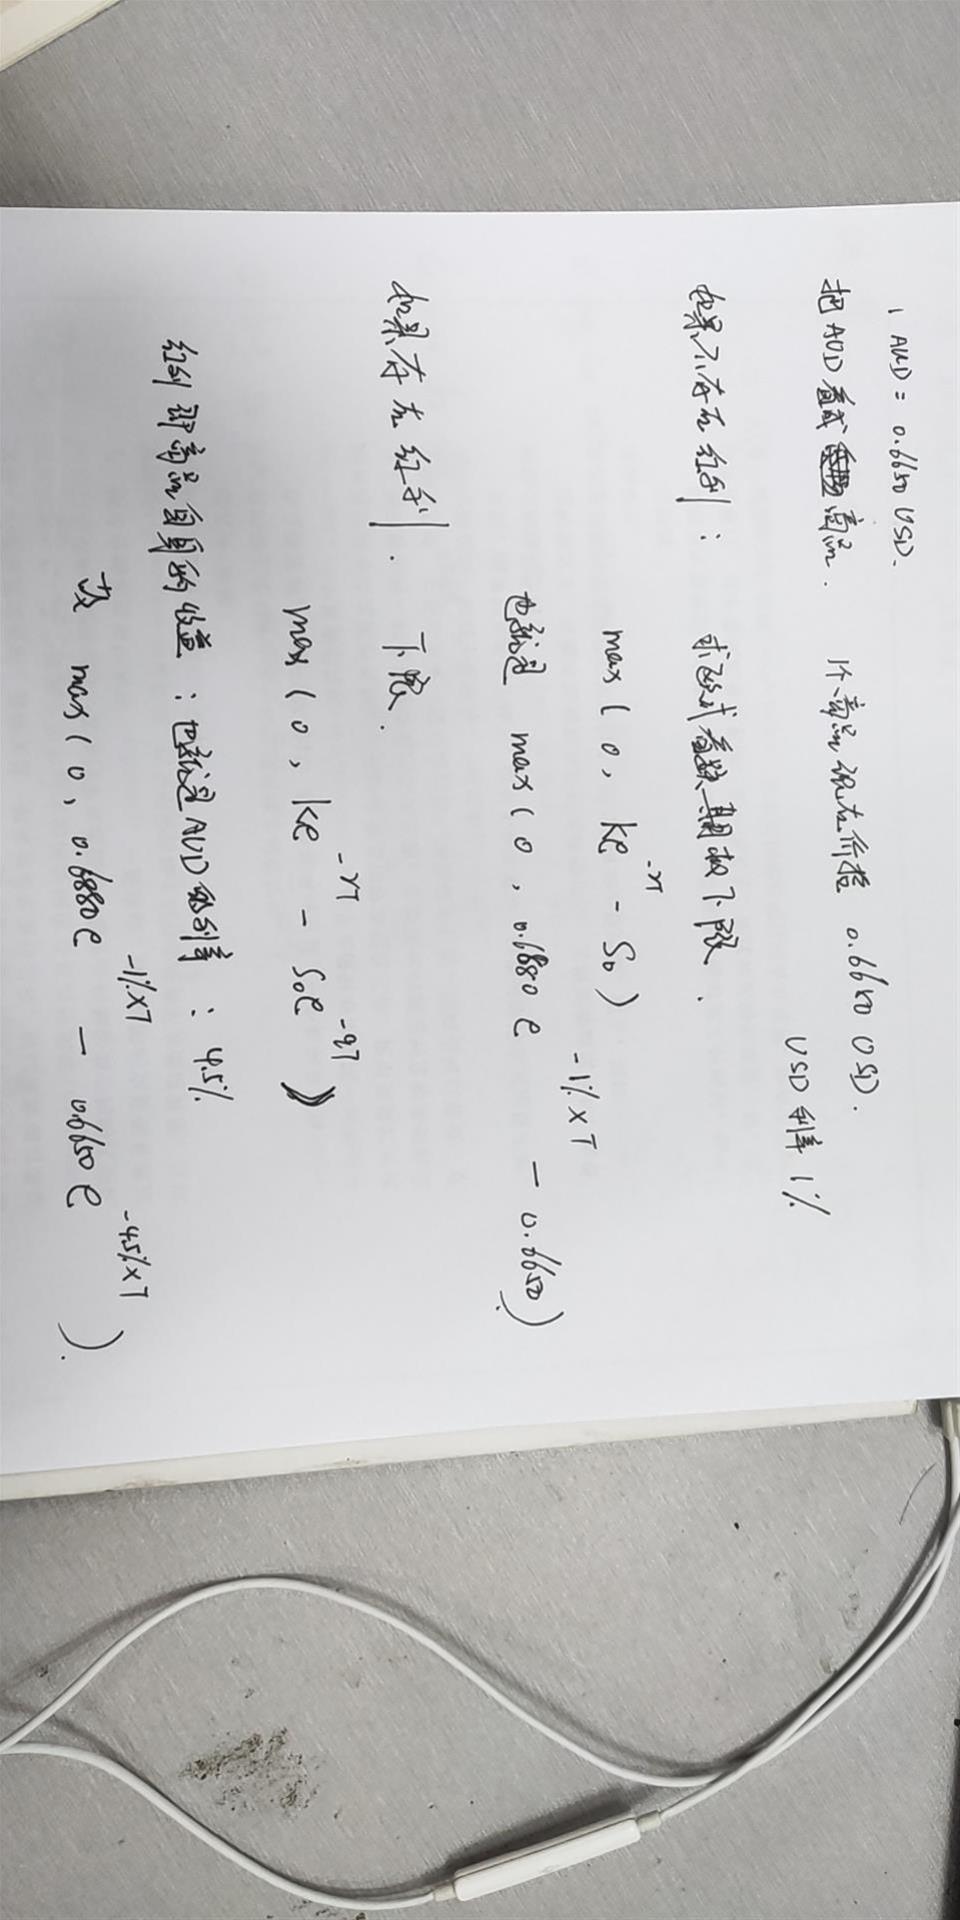 1 AUD = 0.6650 USD.
把AUD看成商品. 1个商品现在价格 0.6650 USD.
USD利率1%
如果不存在红利: 求欧式看跌期权下限.
max(0, Ke^-rT - S0)
也就是 max(0, 0.6880e^-1%×T - 0.6650).
如果存在红利. 下限.
max(0, Ke^-rT - S0e^-qT)
红利即商品自身的收益: 也就是AUD的利率: 4.5%
故 max(0, 0.6880e^-1%×T - 0.6650e^-4.5%×T).